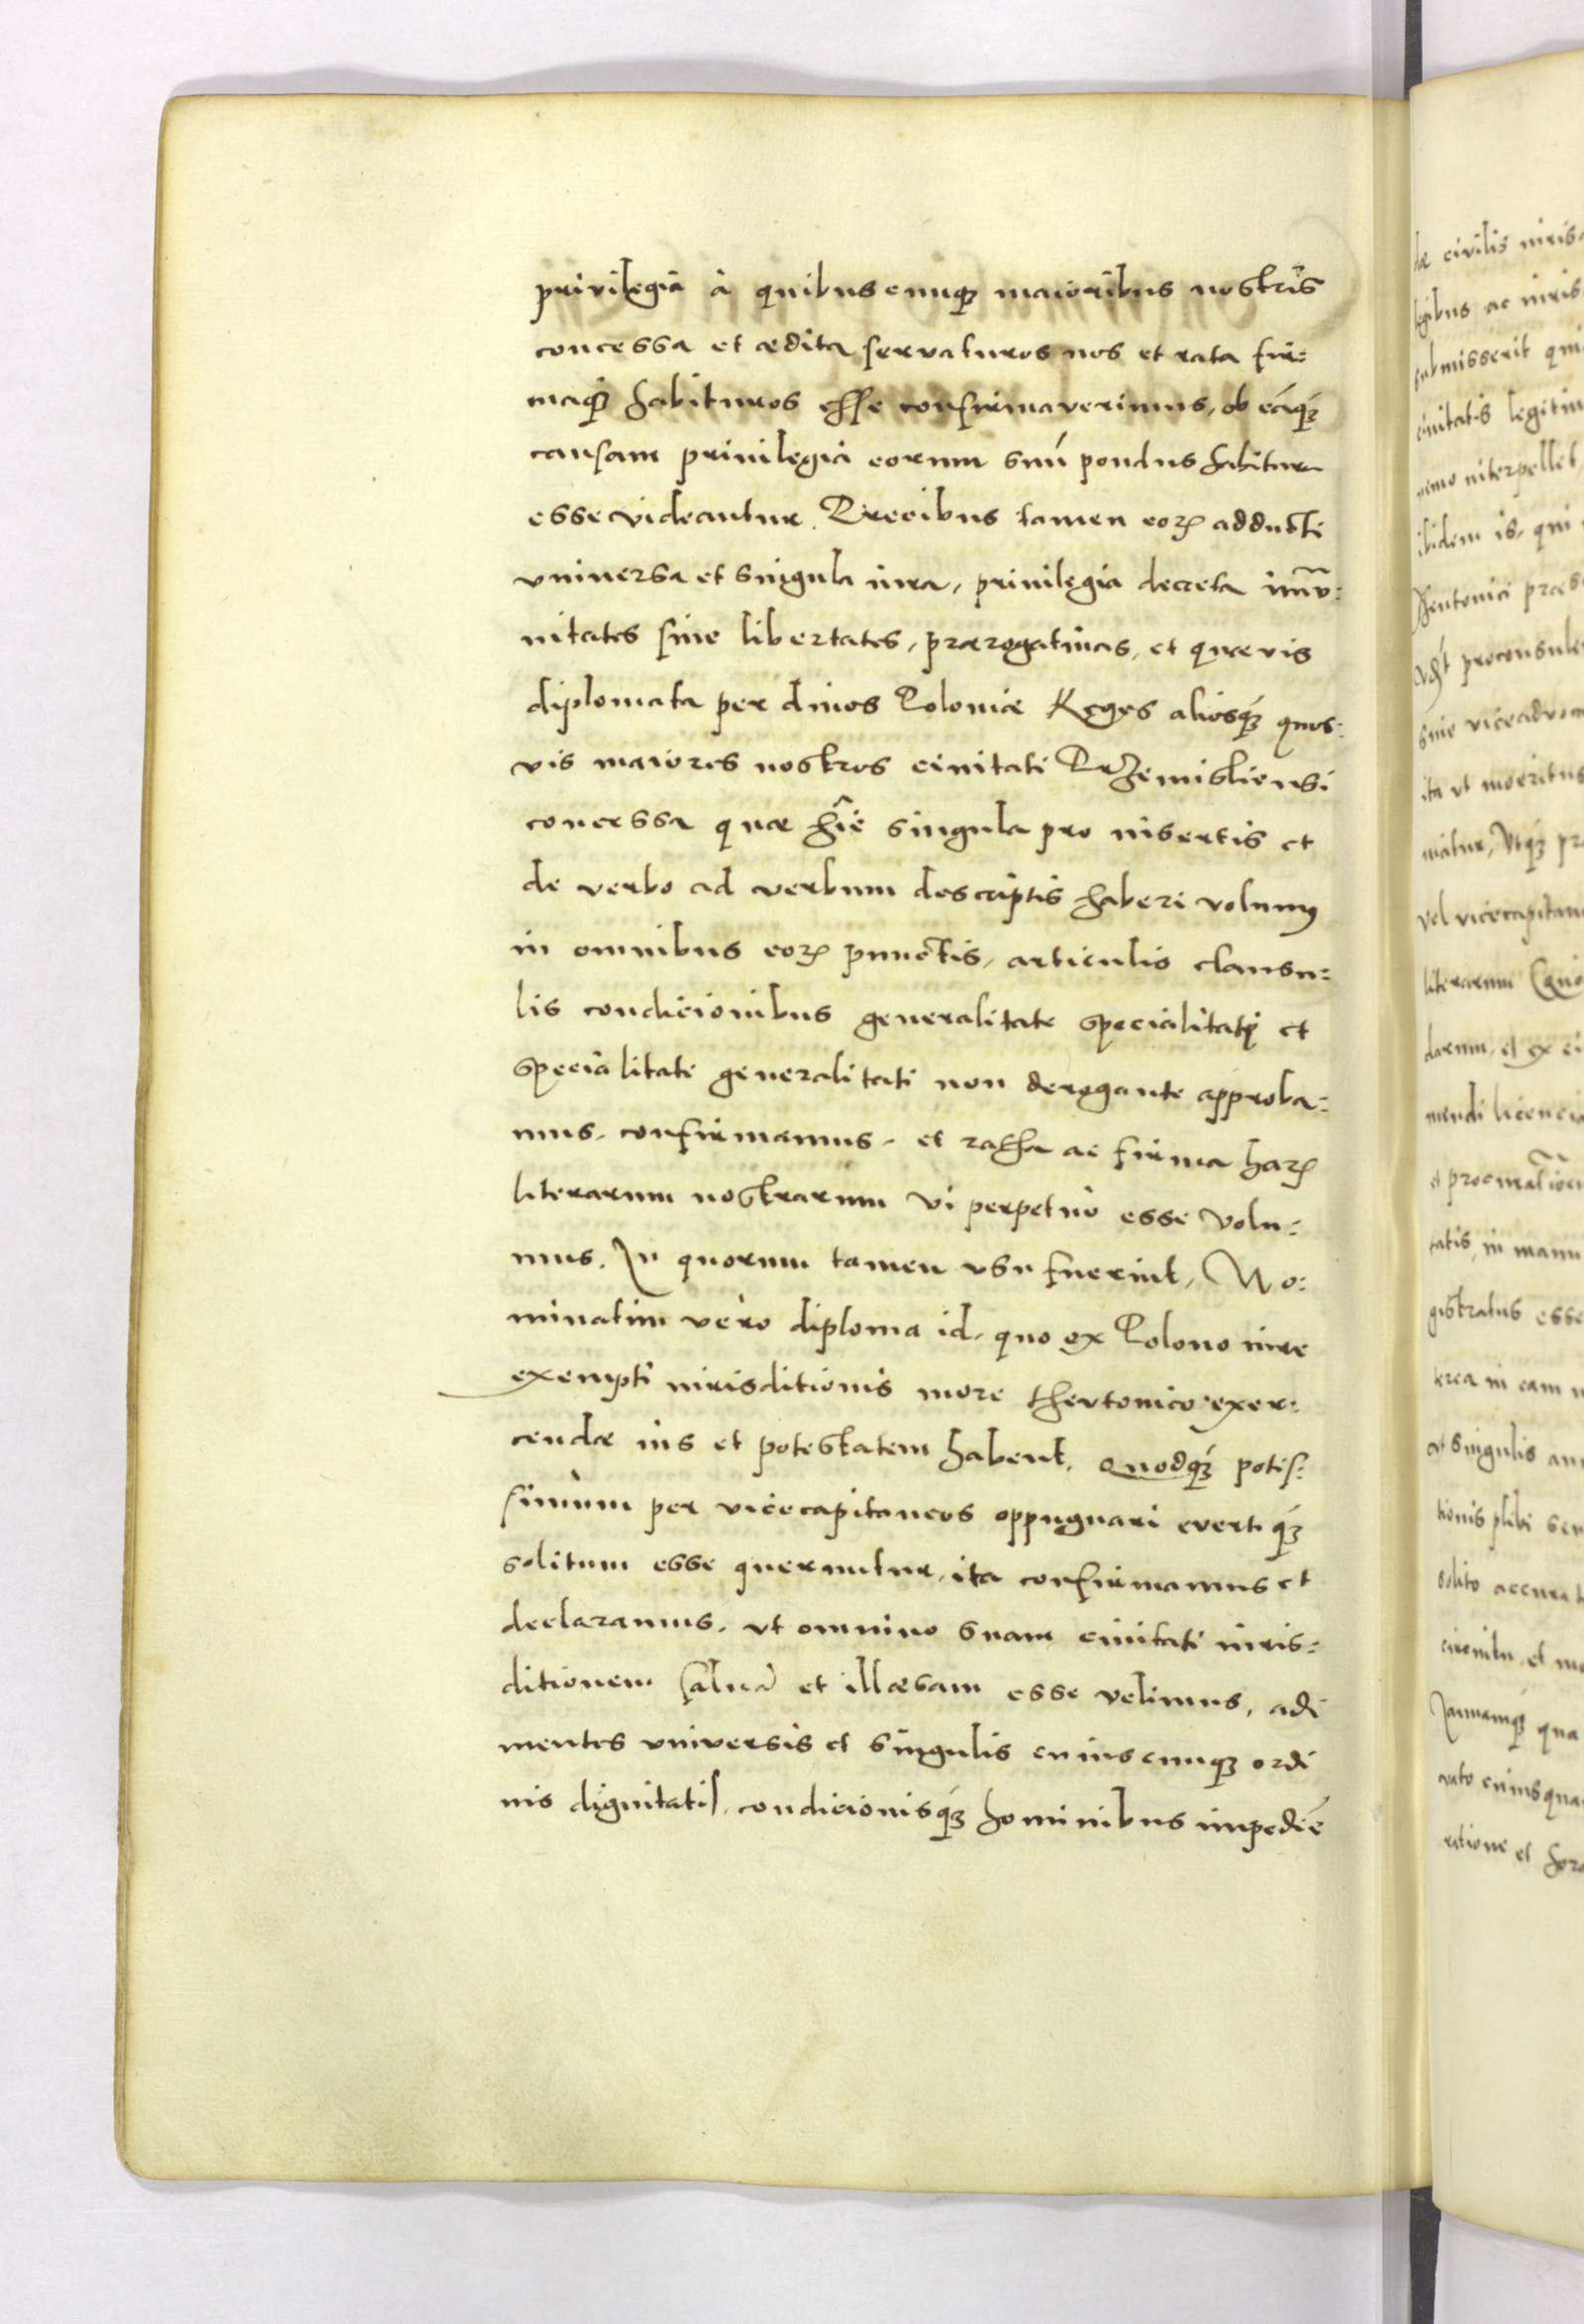 privilegia à quibuscunqꝫ maioribus nostris
concessa et ædita servaturos nos et rata fir:
maqꝫ habituros esse confirmaverimus, ob eāqꝫ
causam priuilegia eorum suū pondus habitura
esse videantur. Precibus tamen eoꝝ adducti
vniuersa et singula iura, priuilegia decreta im̄v:
nitates siue libertates, prærogatiuas, et quævis
diplomata per diuos Poloniæ Reges aliosqꝫ quos:
vis maiores nostros ciuitati Præmisliensi
concessa quæ hic singula pro insertis et
de verbo ad verbum descriptis haberi volumꝰ
in omnibus eoꝝ punctis, articulis clausu:
lis condicionibus generalitate specialitati et
specialitate generalitati non derogante approba:
mus, confirmamus, et ratha ac firma haꝝ
literarum nostrarum vi perpetuò esse volu:
mus. In quorum tamen vsu fuerint, No:
minatim vero diploma id, quo ex Polono iure
exempti iurisditionis more thevtonico exer:
cendæ ius et potestatem habent, quodqꝫ potis:
simum per vicecapitaneos oppugnari evertiqꝫ
solitum esse queruntur, ita confirmamus et
declaramus, vt omnino suam ciuitati iuris:
ditionem saluā et illæsam esse velimus, adi
mentes vniversis et singulis cuiuscunqꝫ ordi
nis dignitatis, condicionisqꝫ hominibus impediē
læ civilis iuris
legibus ac iuris
submisserit
ciuitatis
nemo interpellet,
ibidem is, qui
Theutonici
proconsule
siue
ita vt
vtqꝫ
vel
literarum
darum, et ex
et
tatis, in manu
gistratus esse
in eam
et singulis
tionis plebi
solito
circuitu, et
qua
ratione et